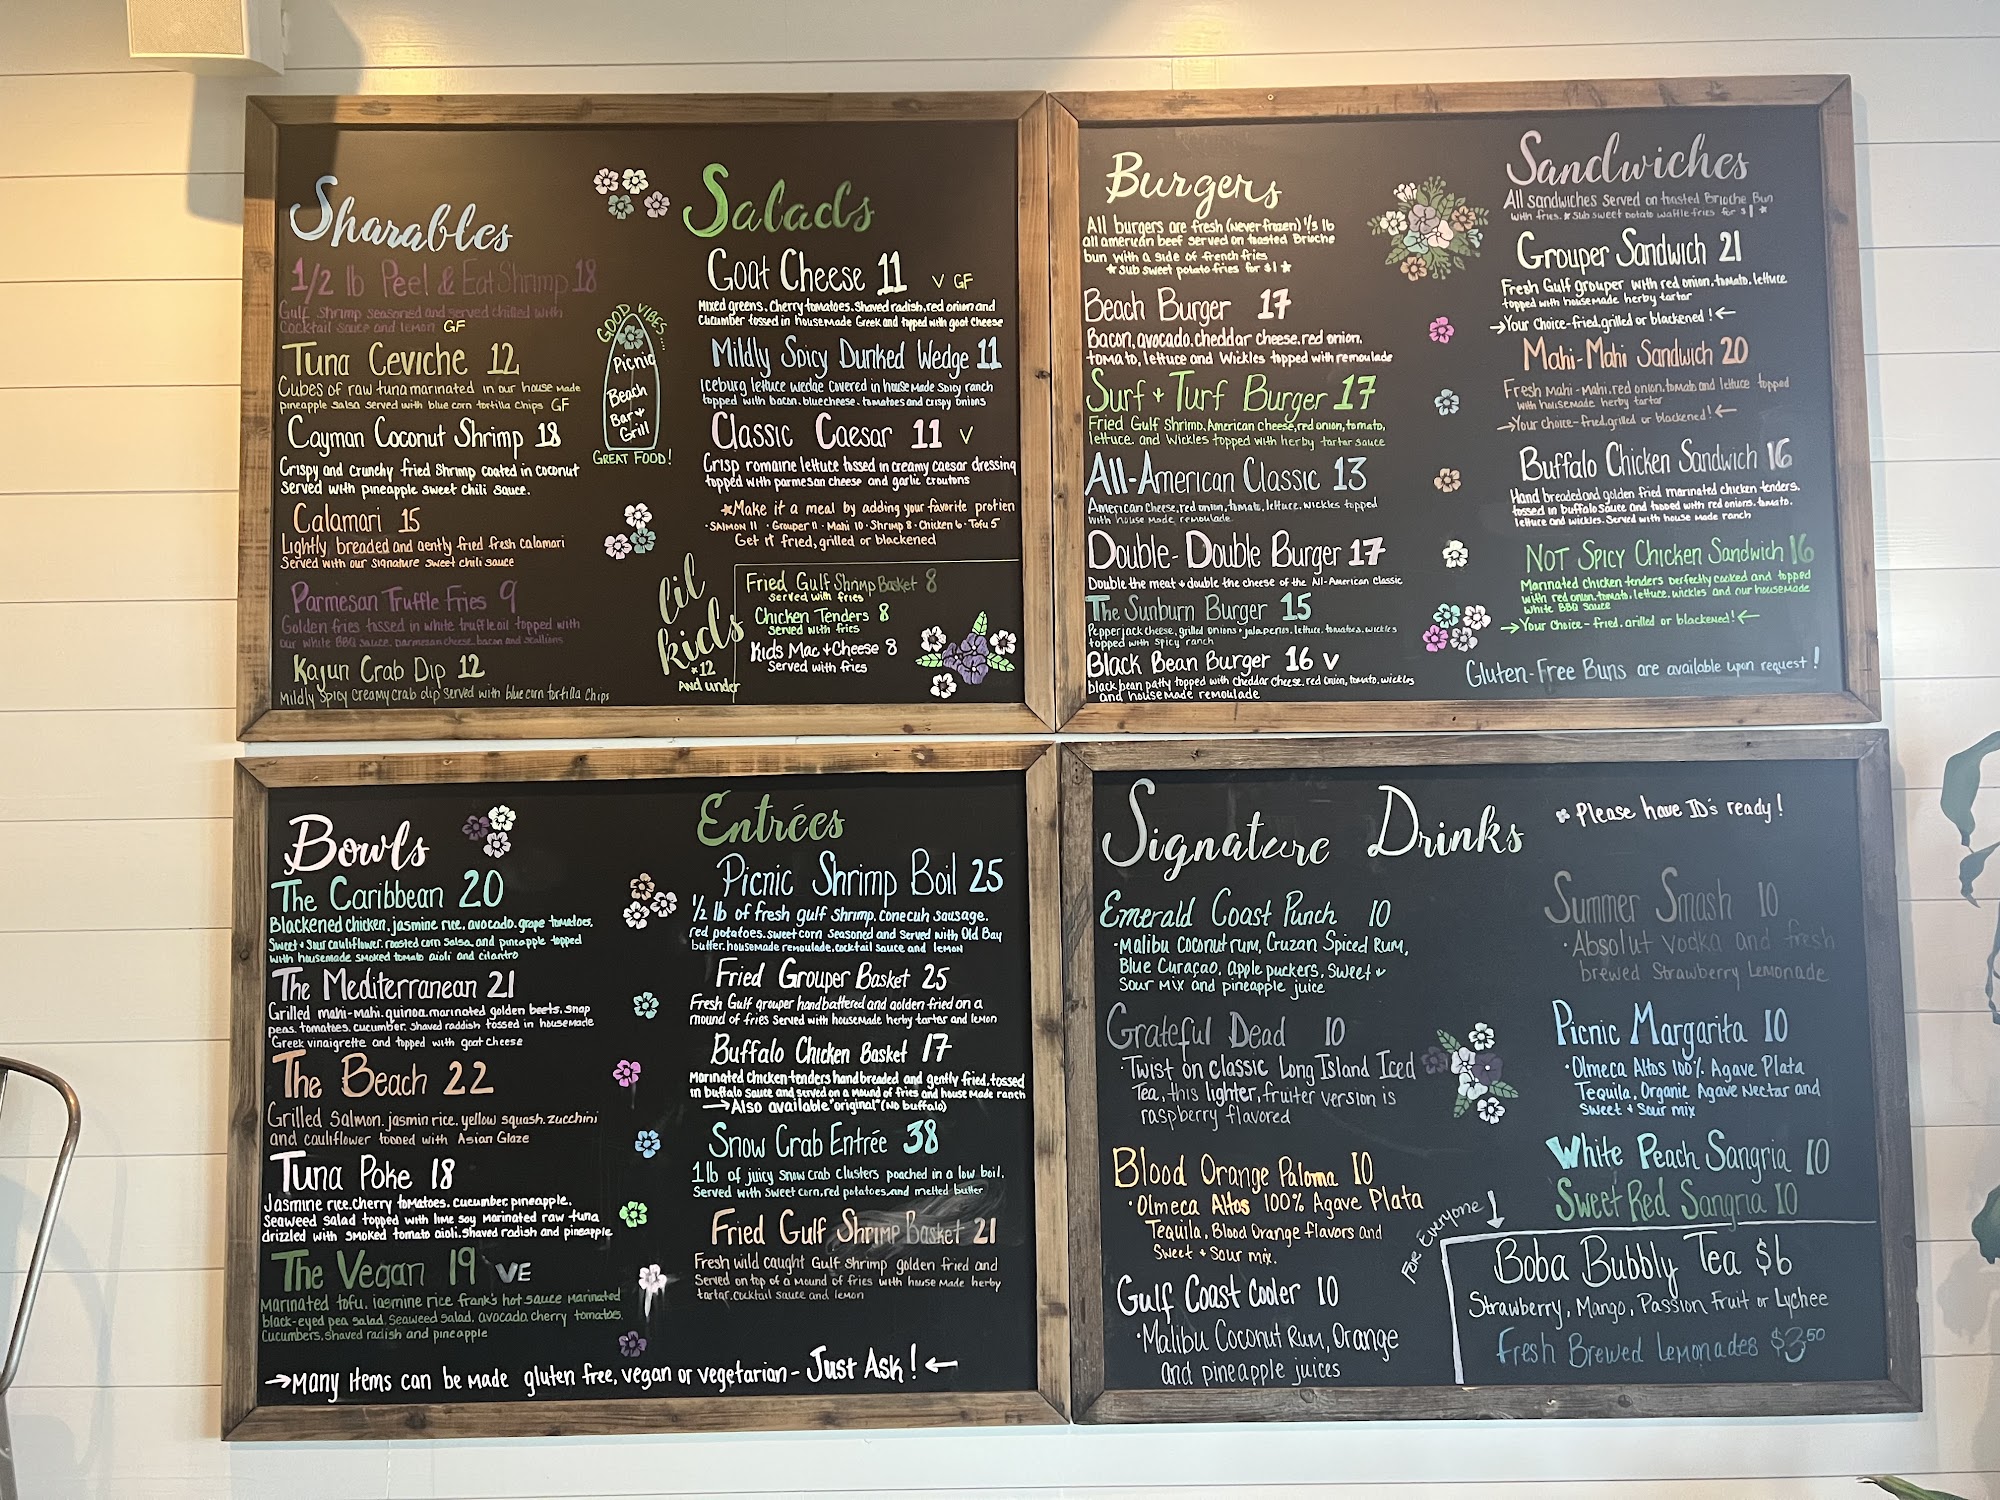 Sharables
1/2 lb Peel & Eat Shrimp 18
Gulf Shrimp seasoned and served chilled with
Cocktail sauce and lemon GF
Tuna Ceviche 12
Cubes of raw tuna marinated in our house made
pineapple salsa served with blue corn tortilla chips GF
Cayman Coconut Shrimp 18
Crispy and crunchy fried shrimp coated in coconut
Served with pineapple sweet chili sauce.
Calamari 15
Lightly breaded and gently fried fresh calamari
Served with our signature sweet chili sauce
Parmesan Truffle Fries 9
Golden fries tossed in white truffle oil topped with
our white BBQ sauce, parmesan cheese, bacon and scallions
Kajun Crab Dip 12
Mildly spicy creamy crab dip served with blue corn tortilla chips
GOOD VIBES....
Picnic
Beach
Bar +
Grill
GREAT FOOD!
Salads
Goat Cheese 11 V GF
Mixed greens, Cherry tomatoes, Shaved radish, red onion and
Cucumber tossed in housemade Greek and topped with goat cheese
Mildly Spicy Dunked Wedge 11
Iceburg lettuce wedge covered in house made spicy ranch
topped with bacon, bluecheese, tomatoes and crispy onions
Classic Caesar 11 V
Crisp romaine lettuce tossed in creamy caesar dressing
topped with parmesan cheese and garlic croutons
*Make it a meal by adding your favorite protien
·Salmon 11 ·Grouper 11 ·Mahi 10 ·Shrimp 8 ·Chicken 6 ·Tofu 5
Get it fried, grilled or blackened
lil
kids
*12
And under
Fried Gulf Shrimp Basket 8
served with fries
Chicken Tenders 8
Served with fries
Kids Mac + Cheese 8
Served with fries
Burgers
All burgers are fresh (never frozen) 1/3 lb
all american beef served on toasted Brioche
bun with a side of french fries
*Sub sweet potato fries for $1*
Beach Burger 17
Bacon, avocado, cheddar cheese, red onion,
tomato, lettuce and Wickles topped with remoulade
Surf + Turf Burger 17
Fried Gulf Shrimp, American cheese, red onion, tomato,
lettuce, and Wickles topped with herby tartar sauce
All-American Classic 13
American cheese, red onion, tomato, lettuce, Wickles topped
with house made remoulade
Double-Double Burger 17
Double the meat + double the cheese of the All-American Classic
The Sunburn Burger 15
Pepperjack cheese, grilled onions + jalapenos, lettuce, tomatoes, wickles
topped with spicy ranch
Black Bean Burger 16 V
black bean patty topped with cheddar cheese, red onion, tomato, wickles
and housemade remoulade
Sandwiches
All sandwiches served on toasted Brioche Bun
with fries. *Sub sweet potato waffle fries for $1*
Grouper Sandwich 21
Fresh Gulf grouper with red onion, tomato, lettuce
topped with housemade herby tartar
→Your choice-fried, grilled or blackened!←
Mahi-Mahi Sandwich 20
Fresh mahi-mahi, red onion, tomato and lettuce topped
with housemade herby tartar
→Your choice-fried, grilled or blackened!←
Buffalo Chicken Sandwich 16
Hand breaded and golden fried marinated chicken tenders,
tossed in buffalo sauce and topped with red onions, tomato,
lettuce and wickles. Served with house made ranch
NOT Spicy Chicken Sandwich 16
Marinated chicken tenders perfectly cooked and topped
with red onion, tomato, lettuce, wickles and our housemade
white BBQ sauce
→Your choice-fried, grilled or blackened!←
Gluten-Free Buns are available upon request!
Bowls
The Caribbean 20
Blackened chicken, jasmine rice, avocado, grape tomatoes,
Sweet + sour cauliflower, roasted corn salsa, and pineapple topped
with housemade smoked tomato aioli and cilantro
The Mediterranean 21
Grilled mahi-mahi, quinoa, marinated golden beets, snap
peas, tomatoes, cucumber, shaved raddish tossed in housemade
Greek vinaigrette and topped with goat cheese
The Beach 22
Grilled Salmon, jasmin rice, yellow squash, zucchini
and cauliflower topped with Asian Glaze
Tuna Poke 18
Jasmine rice, cherry tomatoes, cucumber, pineapple,
Seaweed salad topped with lime soy marinated raw tuna
drizzled with smoked tomato aioli, shaved radish and pineapple
The Vegan 19 VE
Marinated tofu, jasmine rice frank's hot sauce marinated
black-eyed pea salad, seaweed salad, avocado, cherry tomatoes,
Cucumbers, shaved radish and pineapple
Entrées
Picnic Shrimp Boil 25
1/2 lb of fresh gulf shrimp, conecuh sausage,
red potatoes, sweet corn seasoned and served with Old Bay
butter, housemade remoulade, cocktail sauce and lemon
Fried Grouper Basket 25
Fresh Gulf grouper handbattered and golden fried on a
mound of fries served with housemade herby tartar and lemon
Buffalo Chicken Basket 17
Marinated chicken tenders handbreaded and gently fried, tossed
in buffalo sauce and served on a mound of fries and house made ranch
→Also available "original" (No buffalo)
Snow Crab Entrée 38
1 lb of juicy snow crab clusters poached in a low boil,
Served with sweet corn, red potatoes, and melted butter
Fried Gulf Shrimp Basket 21
Fresh wild caught Gulf shrimp golden fried and
Served on top of a mound of fries with house made herby
tartar, cocktail sauce and lemon
→Many items can be made gluten free, vegan or vegetarian - Just Ask!←
Signature Drinks
Please have ID's ready!
Emerald Coast Punch 10
·Malibu Coconut rum, Cruzan Spiced Rum,
Blue Curaçao, apple puckers, sweet +
sour mix and pineapple juice
Grateful Dead 10
·Twist on classic Long Island Iced
Tea, this lighter, fruiter version is
raspberry flavored
Blood Orange Paloma 10
·Olmeca Altos 100% Agave Plata
Tequila, Blood Orange flavors and
Sweet + Sour mix.
Gulf Coast Cooler 10
·Malibu Coconut Rum, Orange
and pineapple juices
Summer Smash 10
·Absolut vodka and fresh
brewed Strawberry Lemonade
Picnic Margarita 10
·Olmeca Altos 100% Agave Plata
Tequila, Organic Agave Nectar and
Sweet + Sour mix
White Peach Sangria 10
Sweet Red Sangria 10
For Everyone!
Boba Bubbly Tea $6
Strawberry, Mango, Passion Fruit or Lychee
Fresh Brewed Lemonades $3.50